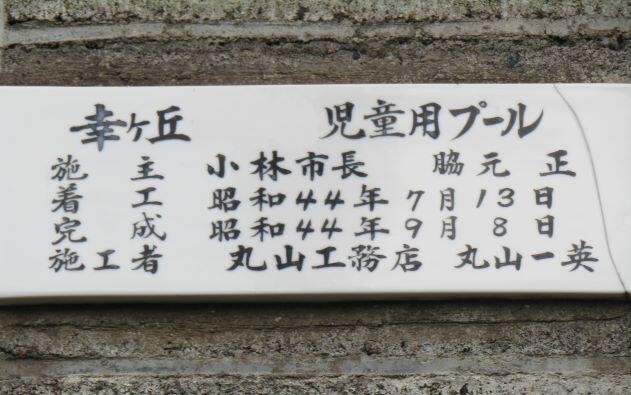 幸ヶ丘 児童用プール
施主 小林市長 脇元正
着工 昭和44年7月13日
完成 昭和44年9月8日
施工者 丸山工務店 丸山一英